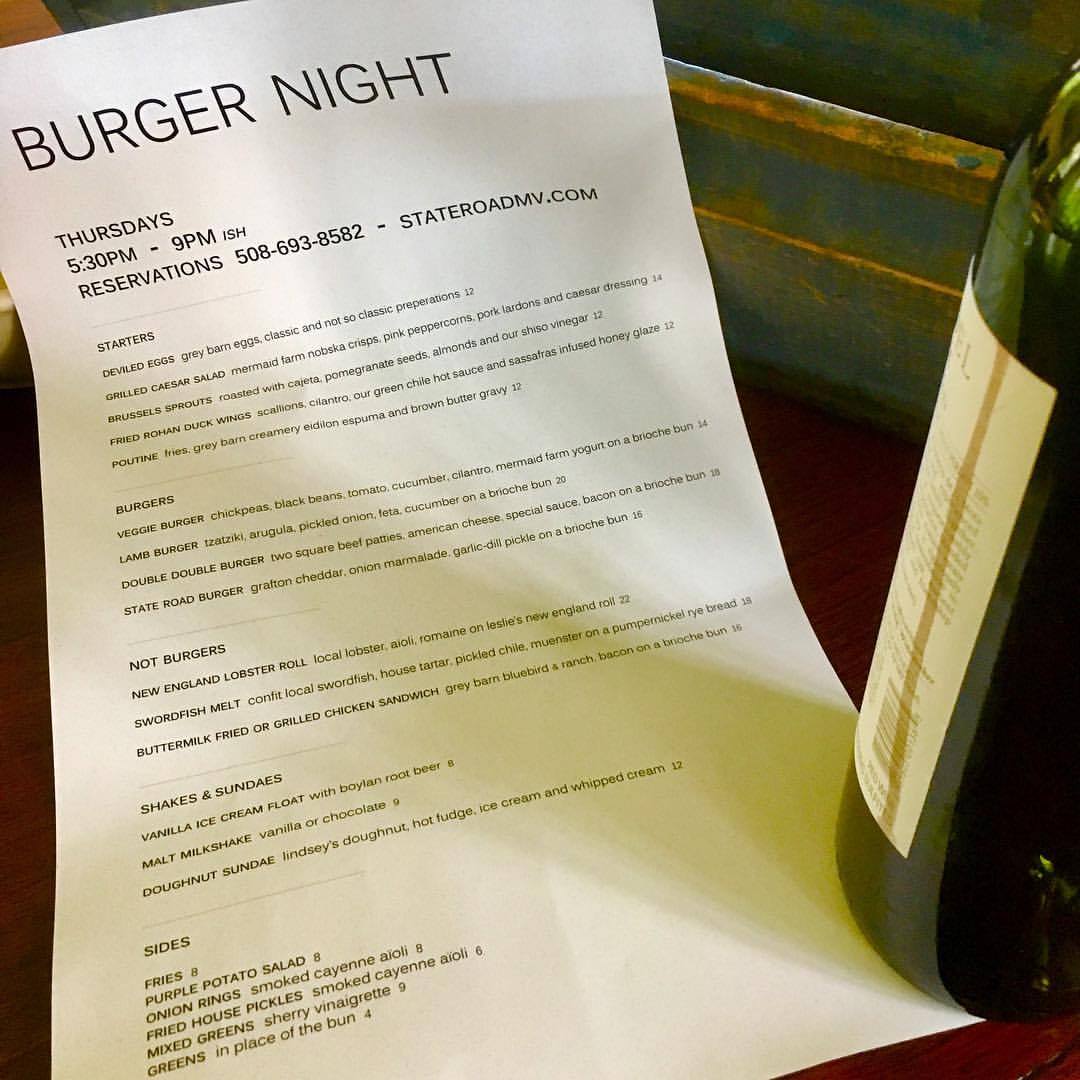 BURGER NIGHT
THURSDAYS
5:30PM - 9PM ISH
RESERVATIONS 508-693-8582 - STATEROADMV.COM
STARTERS
DEVILED EGGS grey barn eggs, classic and not so classic preperations 12
GRILLED CAESAR SALAD mermaid farm nobska crisps, pink peppercorns, pork lardons and caesar dressing 14
BRUSSELS SPROUTS roasted with cajeta, pomegranate seeds, almonds and our shiso vinegar 12
FRIED ROHAN DUCK WINGS scallions, cilantro, our green chile hot sauce and sassafras infused honey glaze 12
POUTINE fries, grey barn creamery eidilon espuma and brown butter gravy 12
BURGERS
VEGGIE BURGER chickpeas, black beans, tomato, cucumber, cilantro, mermaid farm yogurt on a brioche bun 14
LAMB BURGER tzatziki, arugula, pickled onion, feta, cucumber on a brioche bun 20
DOUBLE DOUBLE BURGER two square beef patties, american cheese, special sauce, bacon on a brioche bun 18
STATE ROAD BURGER grafton cheddar, onion marmalade, garlic-dill pickle on a brioche bun 16
NOT BURGERS
NEW ENGLAND LOBSTER ROLL local lobster, aioli, romaine on leslie's new england roll 22
SWORDFISH MELT confit local swordfish, house tartar, pickled chile, muenster on a pumpernickel rye bread 18
BUTTERMILK FRIED OR GRILLED CHICKEN SANDWICH grey barn bluebird & ranch, bacon on a brioche bun 16
SHAKES & SUNDAES
VANILLA ICE CREAM FLOAT with boylan root beer 8
MALT MILKSHAKE vanilla or chocolate 9
DOUGHNUT SUNDAE lindsey's doughnut, hot fudge, ice cream and whipped cream 12
SIDES
FRIES 8
PURPLE POTATO SALAD 8
ONION RINGS smoked cayenne aïoli 8
FRIED HOUSE PICKLES smoked cayenne aïoli 6
MIXED GREENS sherry vinaigrette 9
GREENS in place of the bun 4